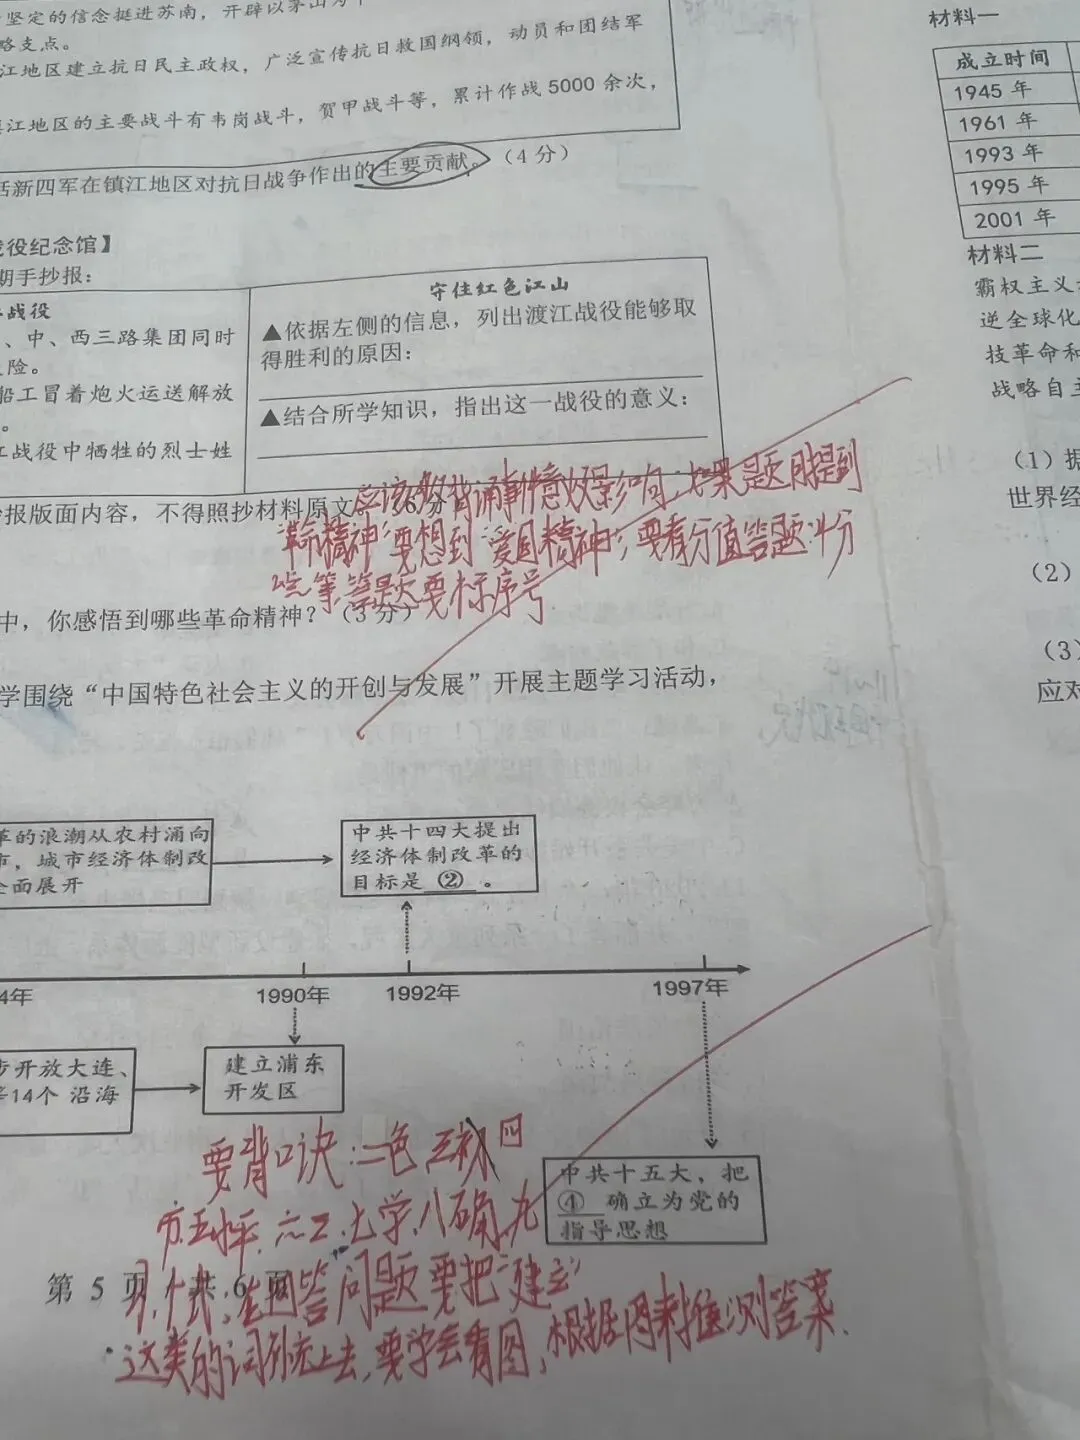 坚定的信念挺进苏南，开辟以茅山为中
略支点。
江地区建立抗日民主政权，广泛宣传抗日救国纲领，动员和团结军
江地区的主要战斗有韦岗战斗，贺甲战斗等，累计作战5000余次，
括新四军在镇江地区对抗日战争作出的主要贡献。（4分）
战役纪念馆】
期手抄报：
战役
、中、西三路集团同时
险。
船工冒着炮火运送解放
。
江战役中牺牲的烈士姓
守住红色江山
▲依据左侧的信息，列出渡江战役能够取
得胜利的原因：
▲结合所学知识，指出这一战役的意义：
抄报版面内容，不得照抄材料原文
6分
应该够背诵事件意义影响，如果题目提到
革命精神要想到"爱国精神"，要看分值答题，4分
等，答题要标序号
中，你感悟到哪些革命精神？（3分）
学围绕“中国特色社会主义的开创与发展”开展主题学习活动，
革的浪潮从农村涌向
市，城市经济体制改
全面展开
中共十四大提出
经济体制改革的
目标是 ② 。
4年
1990年
1992年
1997年
步开放大连、
等14个 沿海
建立浦东
开发区
中共十五大，把
④ 确立为党的
指导思想
要背口诀：二色 三初 四
市.五坪.六三.七学.八确.九
第 5 页，共 6 页
回答问题要把"建立"
这类的词补充上去，要学会看图，根据图来推测答案.
材料一
成立时间
1945 年
1961 年
1993 年
1995 年
2001 年
材料二
霸权主义
逆全球化
技革命和
战略自主
（1）据
世界经
（2）
（3）
应对